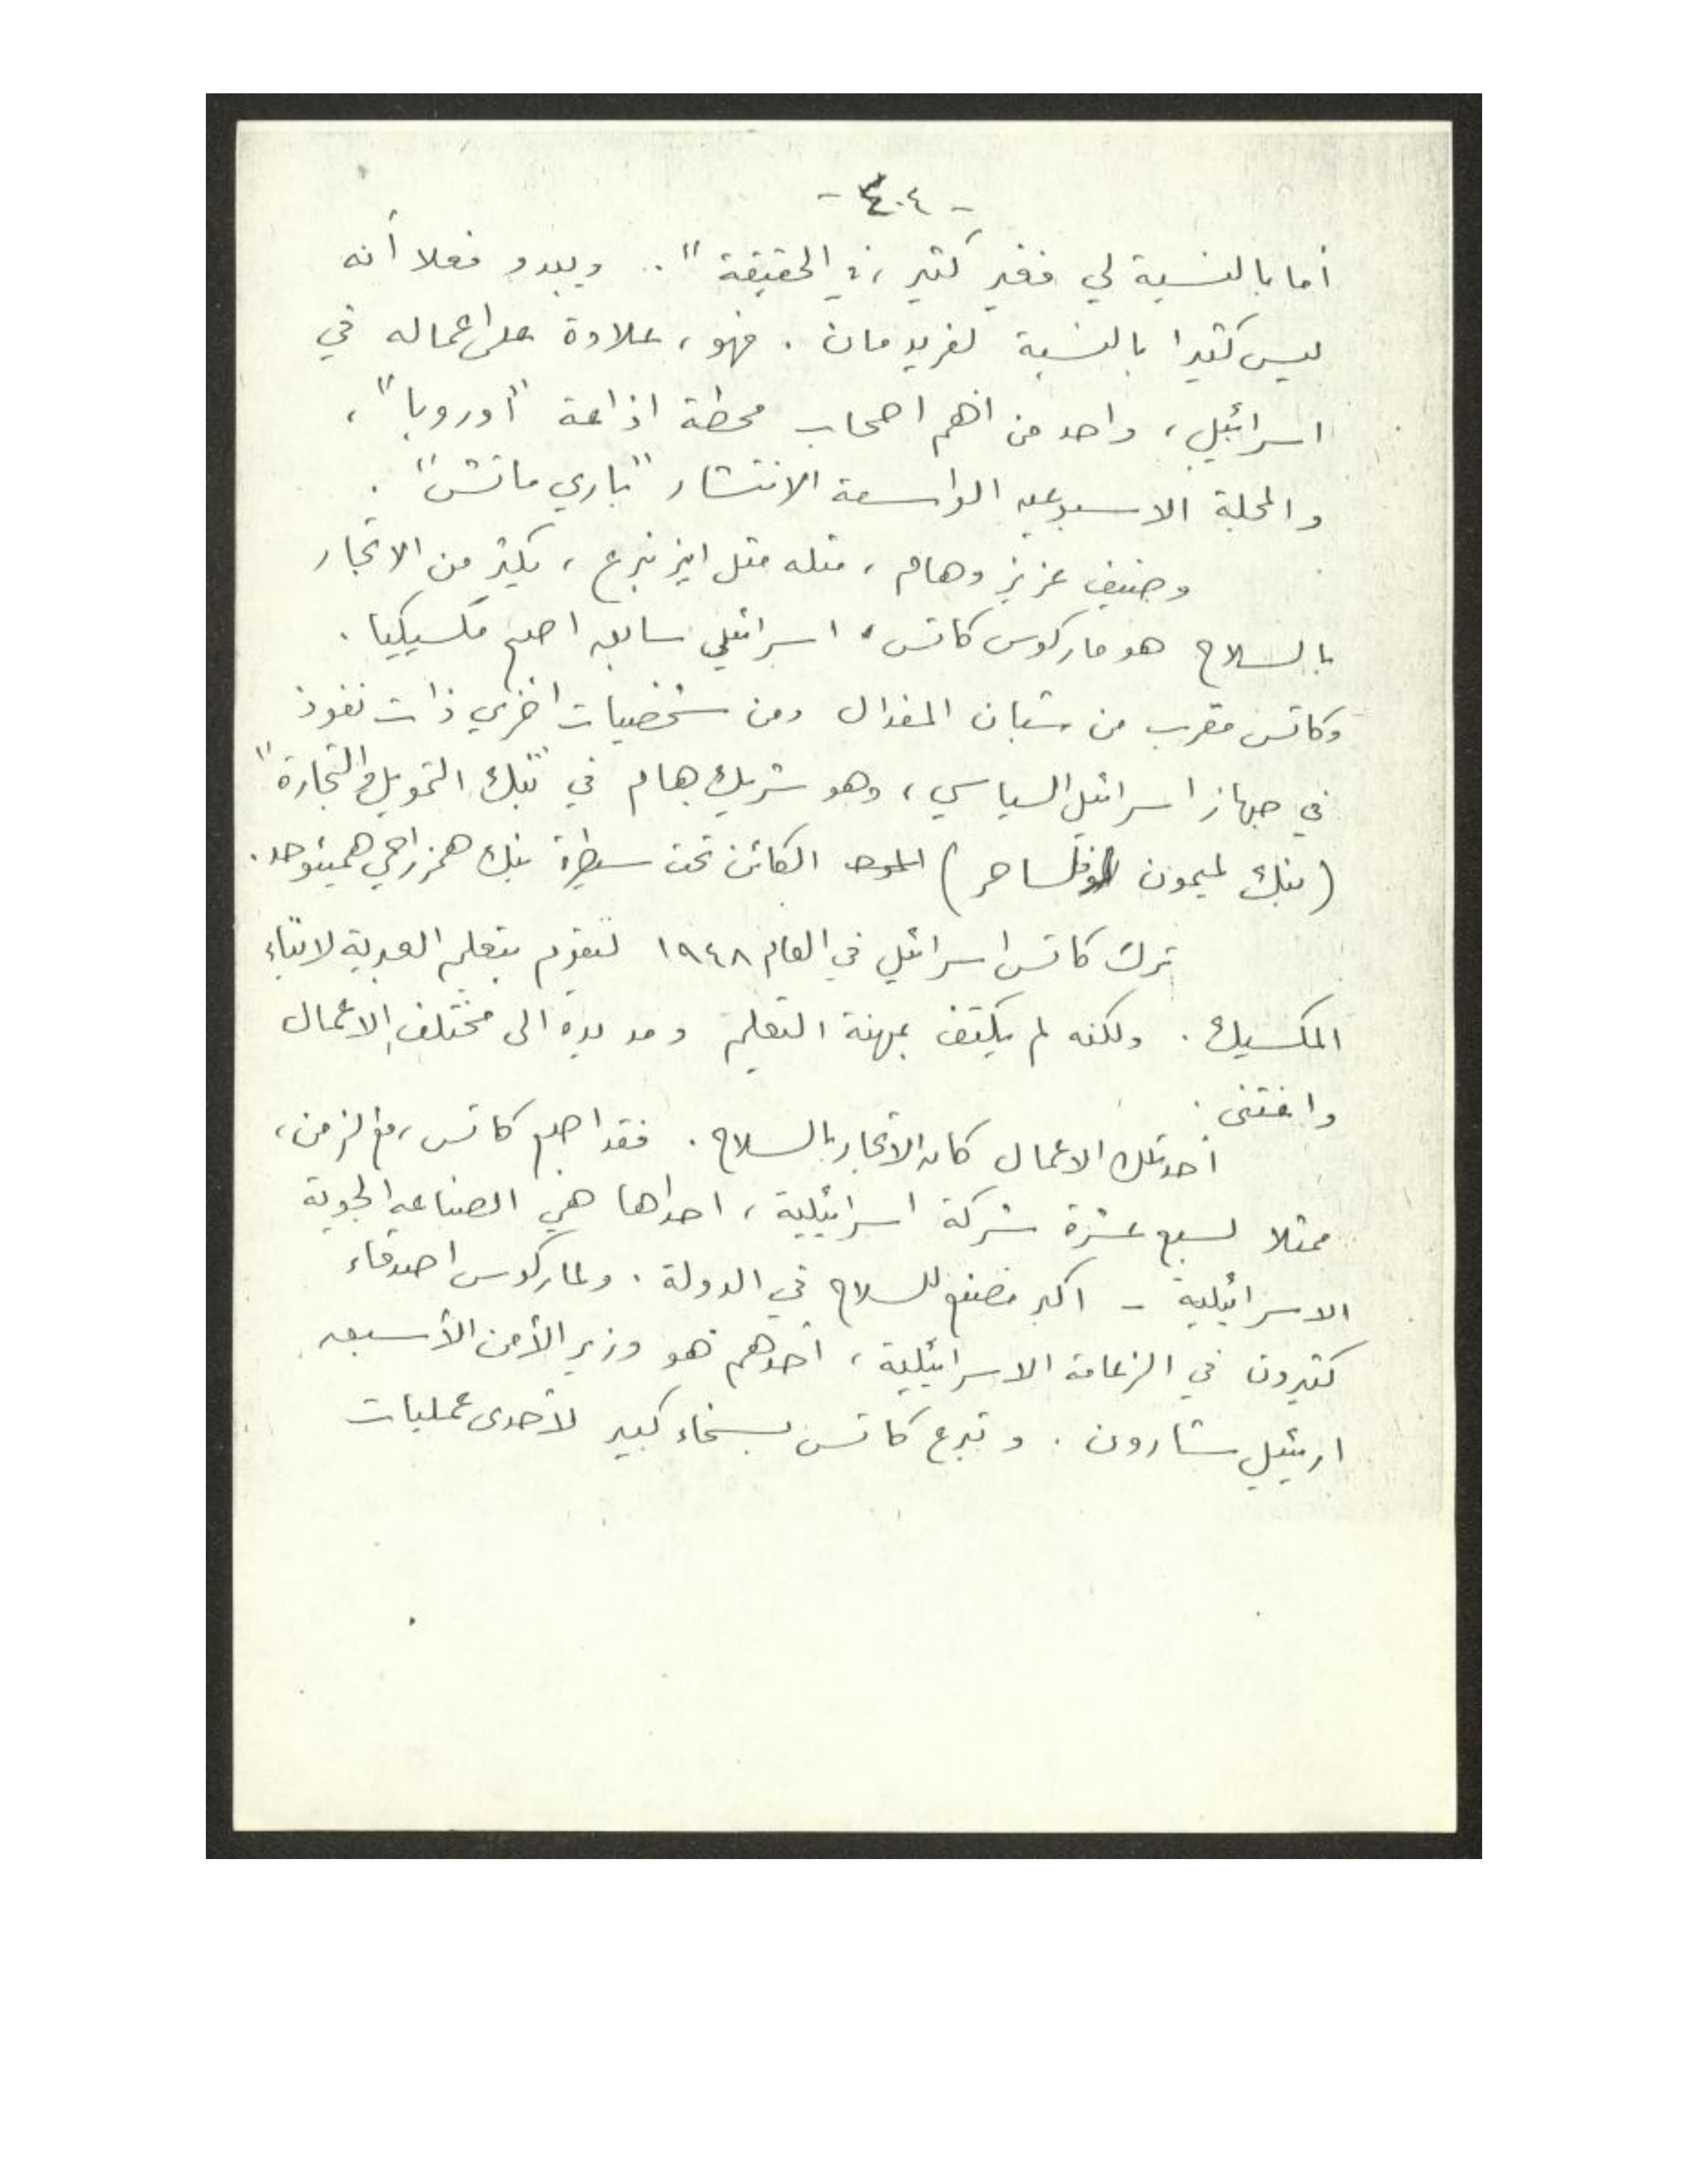 - ٤٠٤ -
أما بالنسبة لي فغير كثير ، في الحقيقة " .. ويبدو فعلا أنه
ليس كثيرا بالنسبة لفريدمان . فهو ، علاوة على اعماله في
اسرائيل ، واحد من أهم اصحاب محطة اذاعة " أوروبا " ،
والمجلة الاسبوعيه الواسعة الانتشار " باري ماتش " .
وضيف عزيز وهام ، مثله مثل ايزنبرغ ، يكثر من الاتجار
بالسلاح هو ماركوس كاتس ، اسرائيلي سابق اصبح مكسيكيا .
وكاتس مقرب من شبان المفدال ومن شخصيات اخرى ذات نفوذ
في جهاز اسرائيل السياسي ، وهو شريك هام في " بنك التمويل والتجارة "
( بنك لميمون ) الكائن تحت سيطرة بنك همزراحي همئوحد .
ترك كاتس اسرائيل في العام ١٩٤٨ ليقوم بتعليم العبرية لابناء
المكسيك . ولكنه لم يكتف بمهنة التعليم ومد يده الى مختلف الاعمال
واغتنى .
أحد تلك الاعمال كان الاتجار بالسلاح . فقد اصبح كاتس ، مع الزمن ،
ممثلا لسبع عشرة شركة اسرائيلية ، احداها هي الصناعه الجوية
الاسرائيلية - اكبر مصنع للسلاح في الدولة . ولماركوس اصدقاء
كثيرون في الزعامة الاسرائيلية ، أحدهم هو وزير الأمن الأسبق
اريئيل شارون . وتبرع كاتس بسخاء كبير لأحدى عمليات